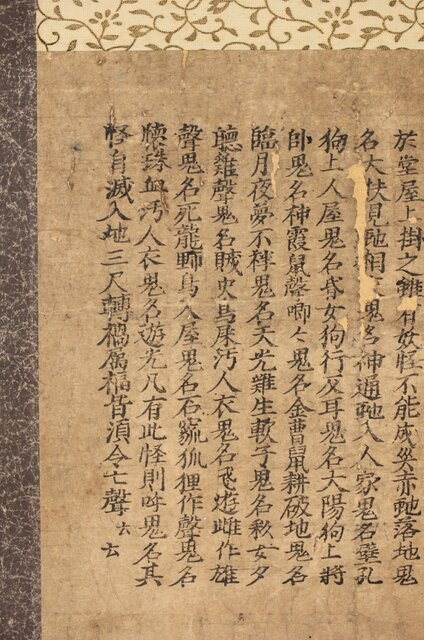 於堂屋上掛之雖有妖怪不能成災赤虵落地鬼
名大扶見虵相入鬼名神通虵入人家鬼名壁孔
狗上人屋鬼名春女狗行叉耳鬼名大陽狗上將
卧鬼名神霞鼠聲唧々鬼名金曹鼠耕破地鬼名
臨月夜夢不祥鬼名天光雞生軟子鬼名秋女夕
聽雞聲鬼名賊史鳥屎汚人衣鬼名飛遊雌作雄
聲鬼名死龍野鳥入屋鬼名石窳狐狸作聲鬼名
懷珠血汚人衣鬼名遊光凡有此怪則呼鬼名其
怪自滅入地三尺轉禍為福皆須令七聲云云